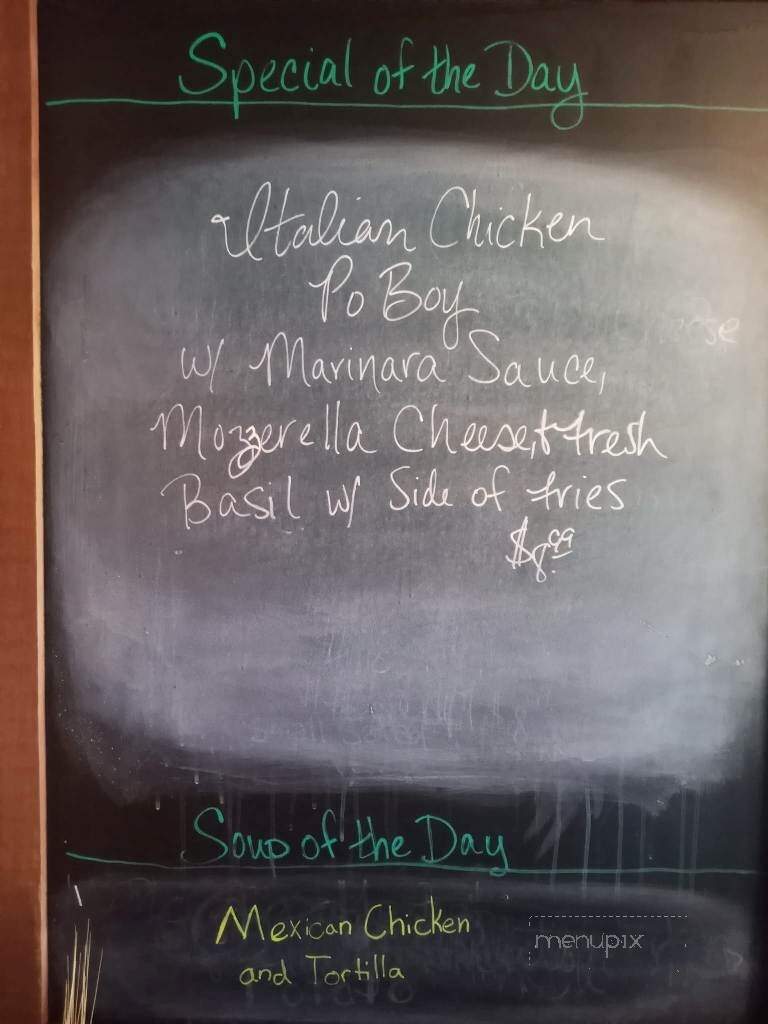 Special of the Day
Italian Chicken
Po Boy
w/ Marinara Sauce,
Mozzerella Cheese, + fresh
Basil w/ Side of fries
$8.99
Soup of the Day
Mexican Chicken
and Tortilla
menupix